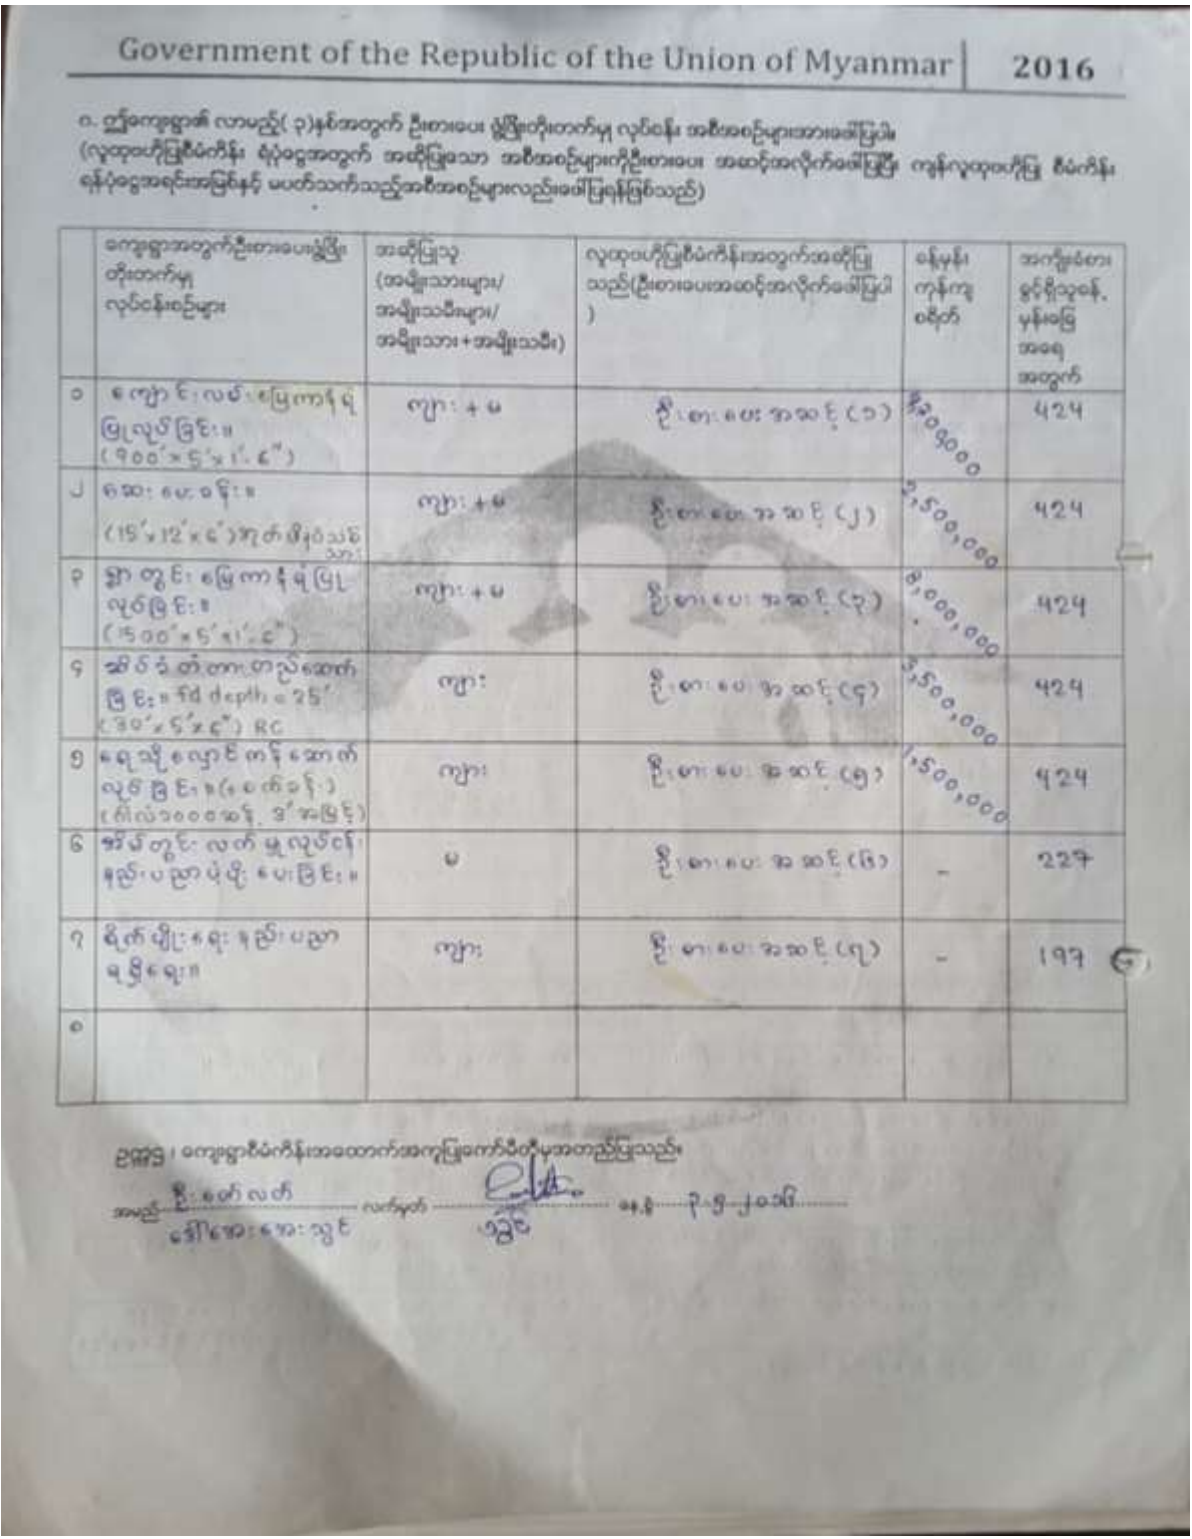 Government of the Republic of the Union of Myanmar | 2016
၈. ဤကျေးရွာ၏ လာမည့်( ၃)နှစ်အတွက် ဦးစားပေး ဖွံ့ဖြိုးတိုးတက်မှု လုပ်ငန်း အစီအစဉ်များအားဖော်ပြပါ။
(လူထုဗဟိုပြုစီမံကိန်း ရံပုံငွေအတွက် အဆိုပြုသော အစီအစဉ်များကိုဦးစားပေး အဆင့်အလိုက်ဖော်ပြပြီး ကျန်လူထုဗဟိုပြု စီမံကိန်း
ရန်ပုံငွေအရင်းအမြစ်နှင့် မပတ်သက်သည့်အစီအစဉ်များလည်းဖော်ပြရန်ဖြစ်သည်)
ကျေးရွာအတွက်ဦးစားပေးဖွံ့ဖြိုး
တိုးတက်မှု
လုပ်ငန်းစဉ်များ
အဆိုပြုသူ
(အမျိုးသားများ/
အမျိုးသမီးများ/
အမျိုးသား+အမျိုးသမီး)
လူထုဗဟိုပြုစီမံကိန်းအတွက်အဆိုပြု
သည်(ဦးစားပေးအဆင့်အလိုက်ဖော်ပြပါ
)
ခန့်မှန်း
ကုန်ကျ
စရိတ်
အကျိုးခံစား
ခွင့်ရှိသူခန့်
မှန်းခြေ
အရေ
အတွက်
၁ ကျောင်းလမ်းမြေကာနံရံ
ပြုလုပ်ခြင်း။
(900'×5'×1'.6")
ကျား + မ
ဦးစားပေးအဆင့် (၁)
424
၂ ဆေးပေးခန်း။
(15'×12'×6')
ကျား + မ
ဦးစားပေးအဆင့် (၂)
2,500,000
424
၃ ရွာတွင်းမြေကာနံရံပြု
လုပ်ခြင်း။
(1500'×5'×1'.6")
ကျား + မ
ဦးစားပေးအဆင့် (၃)
8,000,000
424
၄ ဆိပ်ခံတံတားတည်ဆောက်
ခြင်း။ fd depth = 25'
(30'×5'×6") RC
ကျား
ဦးစားပေးအဆင့် (၄)
3,500,000
424
၅ ရေသိုလှောင်ကန်ဆောက်
လုပ်ခြင်း။
(ဂါလံ၁၀၀၀ဆန့်, 3'အမြင့်)
ကျား
ဦးစားပေးအဆင့် (၅)
1,500,000
424
၆ အိမ်တွင်းလက်မှုလုပ်ငန်း
နည်းပညာပံ့ပိုးပေးခြင်း။
မ
ဦးစားပေးအဆင့် (၆)
-
227
၇ စိုက်ပျိုးရေးနည်းပညာ
ရရှိရေး။
ကျား
ဦးစားပေးအဆင့် (၇)
-
197
၈
ဥက္ကဋ္ဌ ၊ ကျေးရွာစီမံကိန်းအထောက်အကူပြုကော်မီတီမှအတည်ပြုသည်။
အမည် ဦးဇော်လတ် လက်မှတ် နေ့စွဲ ၃-၅-၂၀၁၆
ဒေါ်အေးအေးသွင် သွင်